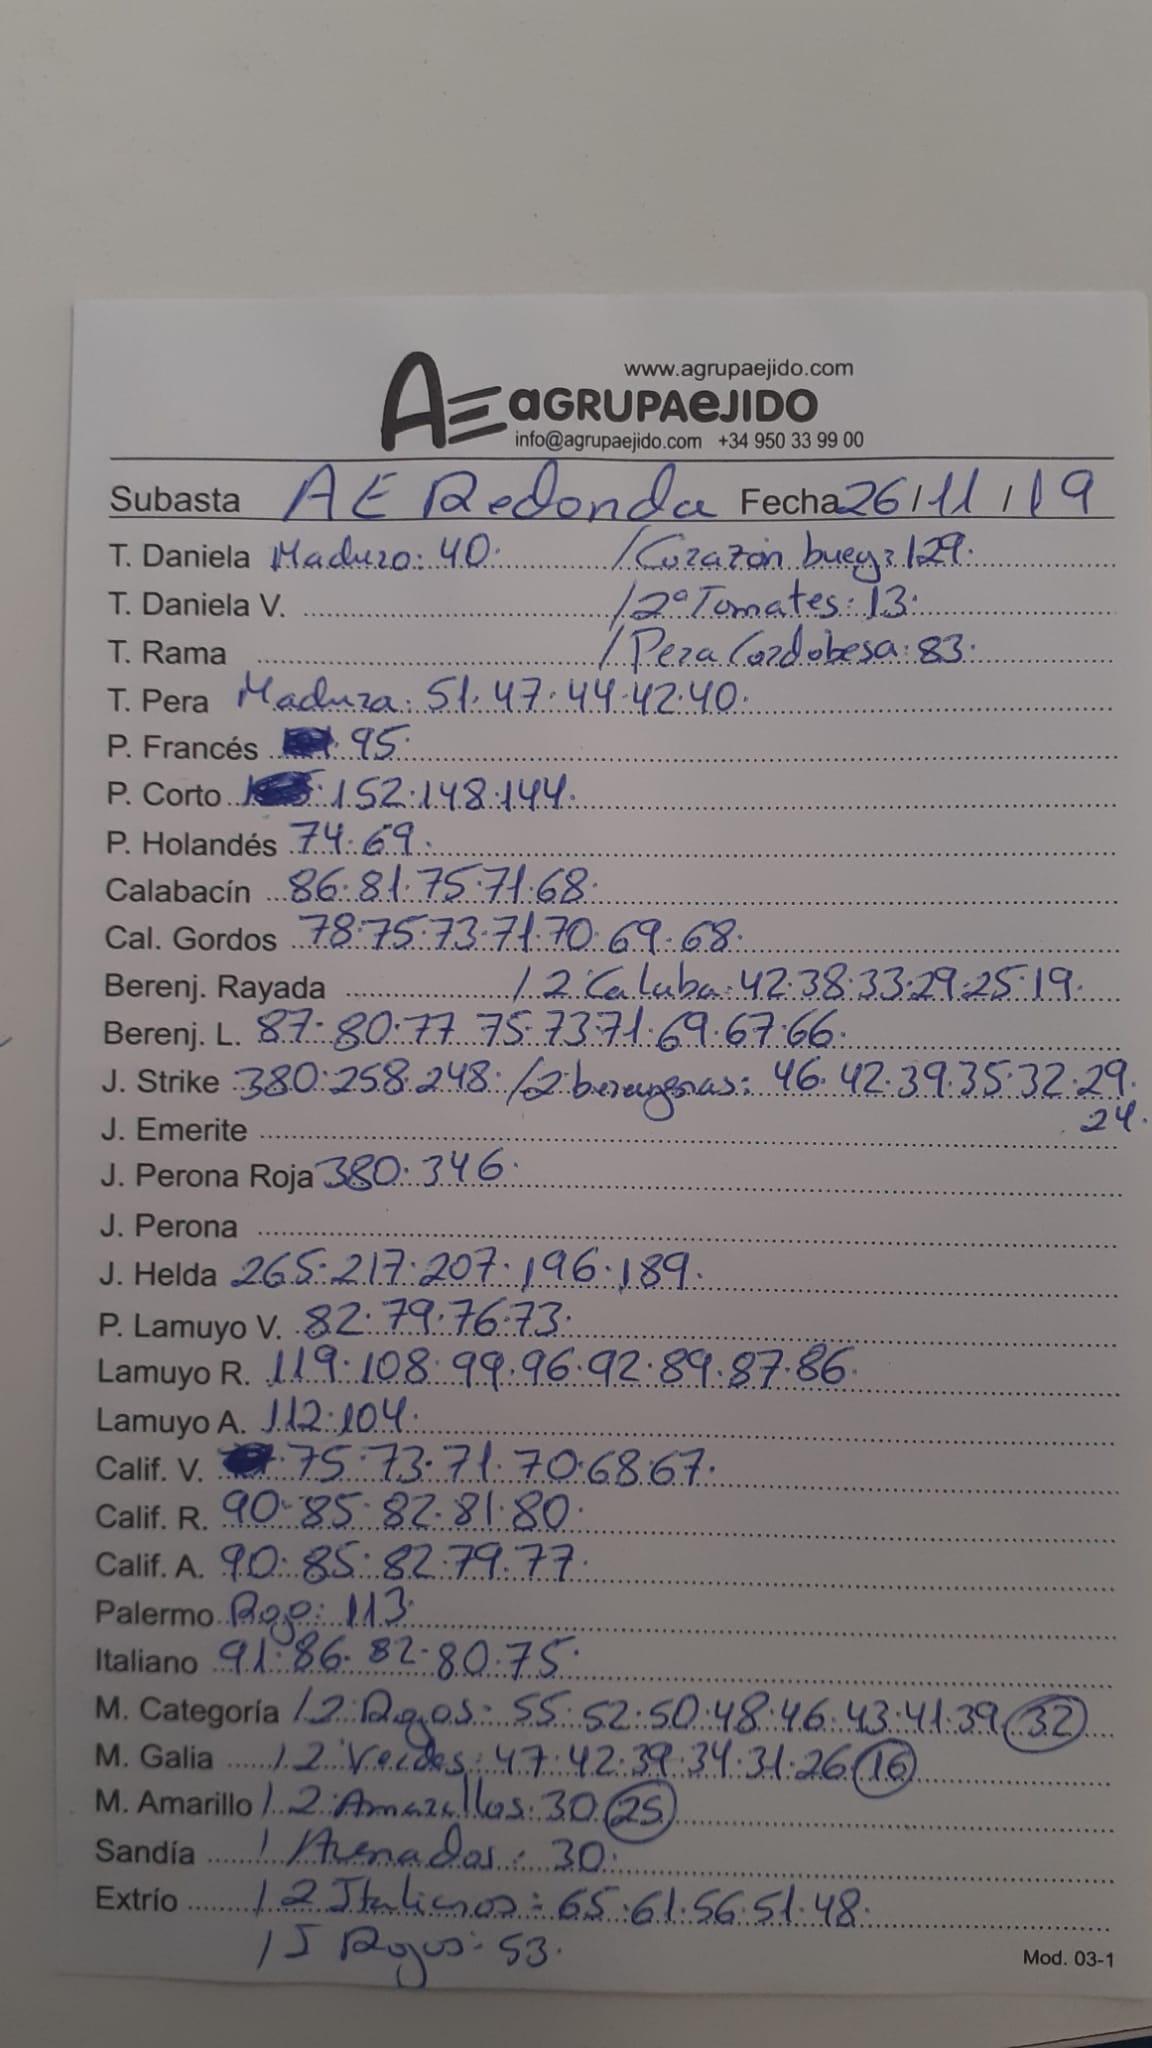 www.agrupaejido.com
AE aGRUPAeJIDO
info@agrupaejido.com +34 950 33 99 00
Subasta AE Redonda Fecha 26/11/19
T. Daniela Maduro: 40. / Corazón buey: 129.
T. Daniela V. / 2ª Tomates: 13.
T. Rama / Pera Cordobesa: 83.
T. Pera Madura: 51.47.44.42.40.
P. Francés 95.
P. Corto 152.148.144.
P. Holandés 74.69.
Calabacín 86.81.75.71.68.
Cal. Gordos 78.75.73.71.70.69.68.
Berenj. Rayada / 2 Calaba: 42.38.33.29.25.19.
Berenj. L. 87.80.77.75.73.71.69.67.66.
J. Strike 380.258.248. / 2 berengenas: 46.42.39.35.32.29.
24.
J. Emerite
J. Perona Roja 380.346.
J. Perona
J. Helda 265.217.207.196.189.
P. Lamuyo V. 82.79.76.73.
Lamuyo R. 119.108.99.96.92.89.87.86.
Lamuyo A. 112.104.
Calif. V. 75.73.71.70.68.67.
Calif. R. 90.85.82.81.80.
Calif. A. 90.85.82.79.77.
Palermo Rojo: 113.
Italiano 91.86.82.80.75.
M. Categoría / 2 Rojos: 55.52.50.48.46.43.41.39 (32)
M. Galia / 2 Verdes: 47.42.39.34.31.26 (16)
M. Amarillo / 2 Amarillos: 30 (25)
Sandía / Asenados: 30.
Extrío / 2 Italianos: 65.61.56.51.48.
/ J Rojos: 53.
Mod. 03-1